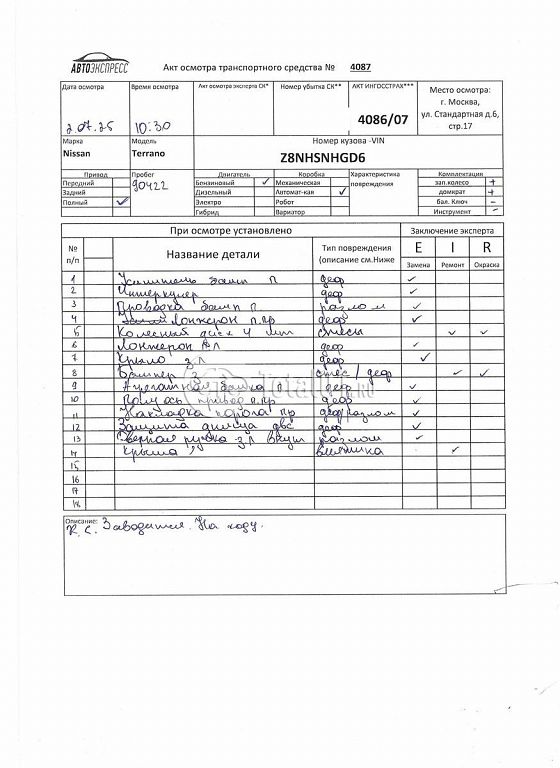 АВТОЭКСПРЕСС
Акт осмотра транспортного средства № 4087
Дата осмотра Время осмотра Акт осмотра эксперта СК* Номер убытка СК** АКТ ИНГОССТРАХ*** Место осмотра:
г. Москва,
2 07.25 10:30 4086/07 ул. Стандартная д.6,
стр.17
Марка Модель Номер кузова -VIN
Nissan Terrano Z8NHSNHGD6
Привод Пробег Двигатель Коробка Характеристика повреждения Комплектация
Передний 90422 Бензиновый ✓ Механическая зап.колесо +
Задний Дизельный Автомат-кая ✓ домкрат +
Полный ✓ Электро Робот бал. Ключ –
Гибрид Вариатор Инструмент –
При осмотре установлено Заключение эксперта
№ п/п Название детали Тип повреждения (описание см.Ниже E I R
Замена Ремонт Окраска
1 Усилитель бамп П деф ✓
2 Интеркулер деф ✓
3 Проводка бамп П разлом ✓
4 Лонжерон п.пр деф ✓
5 Колесный диск 4 шт стесы ✓ ✓
6 Лонжерон деф ✓
7 Крыло з Л деф ✓
8 Бампер З стес / деф ✓ ✓
9 балка П деф ✓
10 Полуось привод п.пр деф ✓
11 Накладка порога Пр деф/разлом ✓
12 Защита двс деф ✓
13 Дверная ручка з Л внутр разлом ✓
14 Крыша вмятинка ✓
15
16
17
18
Описание: Заводится. На ходу.